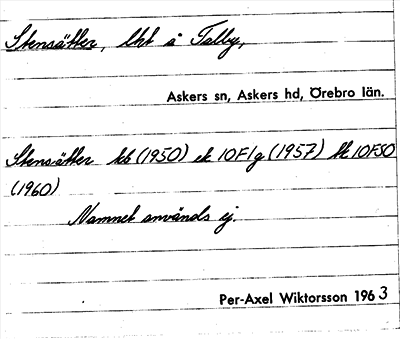 Stensätter, lht å Talby,
Askers sn, Askers hd, Örebro län.
Stensätter kb (1950) ek 10F1g (1957) tk 10FSO
(1960)
Namnet används ej.
Per-Axel Wiktorsson 1963